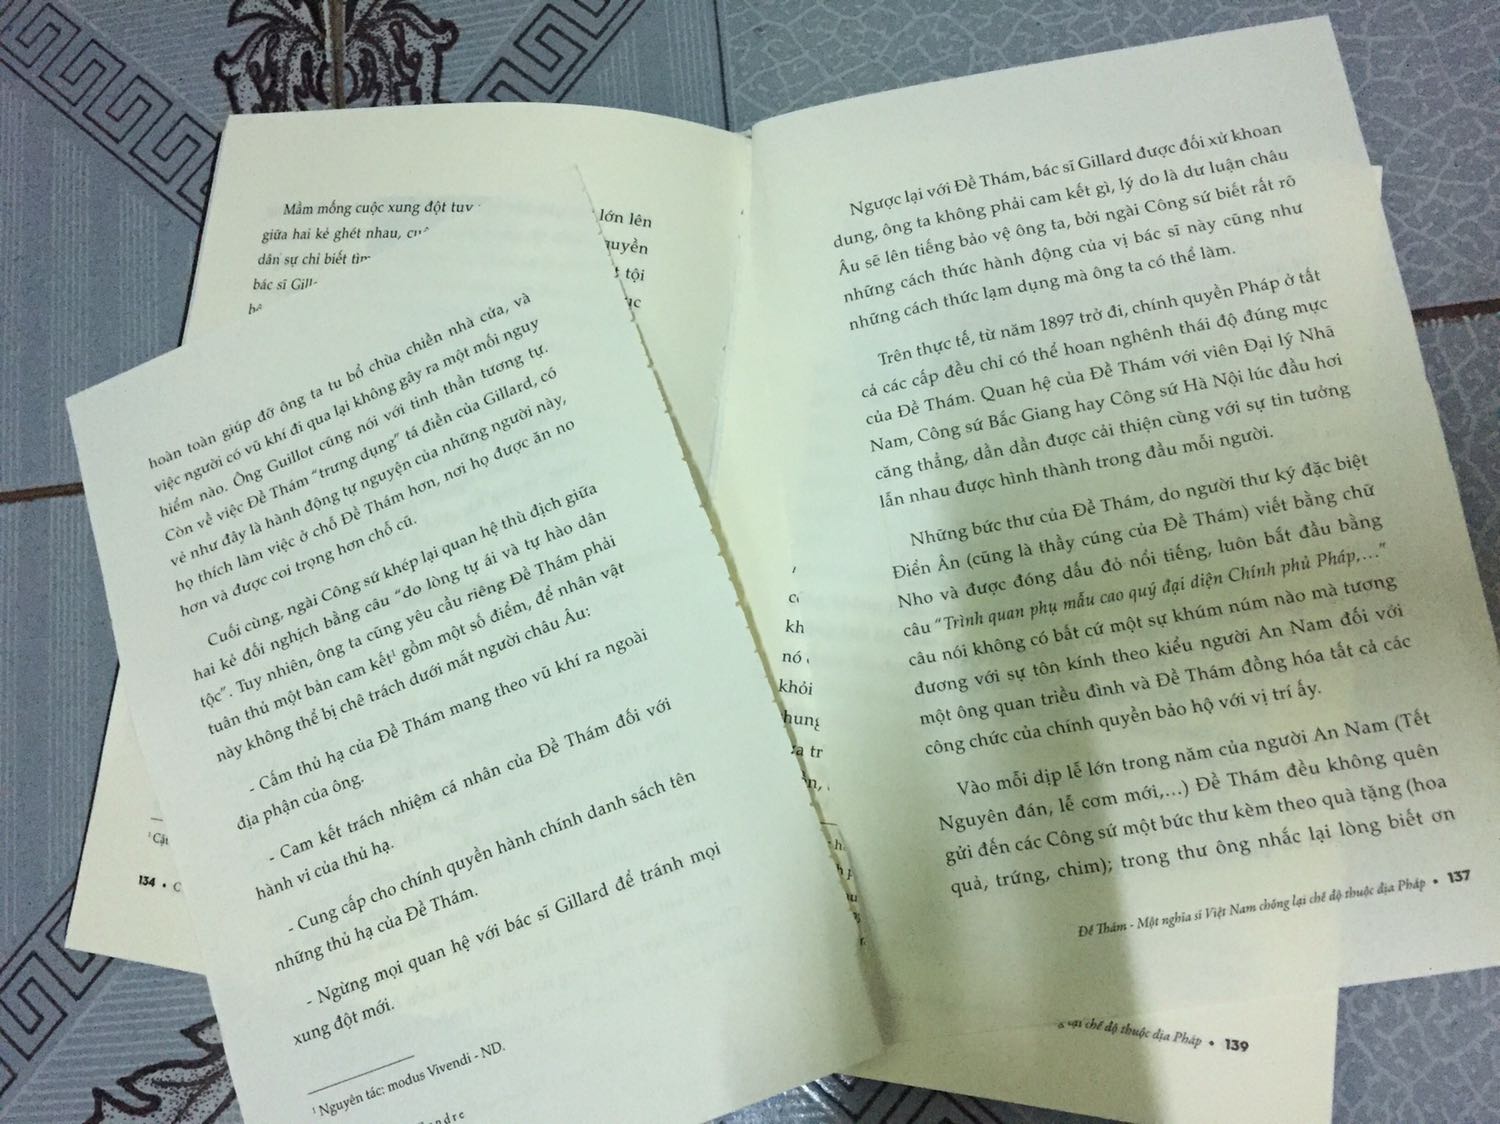 Mầm mống cuộc xung đột
giữa hai kẻ ghét nhau,
dân sự chỉ biết
bác sĩ
lớn lên
quyền
tội
134 •
hoàn toàn giúp đỡ ông ta tu bổ chùa chiền nhà cửa, và
việc người có vũ khí đi qua lại không gây ra một mối nguy
hiểm nào. Ông Guillot cũng nói với tinh thần tương tự.
Còn về việc Đề Thám “trưng dụng” tá điền của Gillard, có
vẻ như đây là hành động tự nguyện của những người này,
họ thích làm việc ở chỗ Đề Thám hơn, nơi họ được ăn no
hơn và được coi trọng hơn chỗ cũ.
Cuối cùng, ngài Công sứ khép lại quan hệ thù địch giữa
hai kẻ đối nghịch bằng câu “do lòng tự ái và tự hào dân
tộc”. Tuy nhiên, ông ta cũng yêu cầu riêng Đề Thám phải
tuân thủ một bản cam kết¹ gồm một số điểm, để nhân vật
này không thể bị chê trách dưới mắt người châu Âu:
- Cấm thủ hạ của Đề Thám mang theo vũ khí ra ngoài
địa phận của ông.
- Cam kết trách nhiệm cá nhân của Đề Thám đối với
hành vi của thủ hạ.
- Cung cấp cho chính quyền hành chính danh sách tên
những thủ hạ của Đề Thám.
- Ngừng mọi quan hệ với bác sĩ Gillard để tránh mọi
xung đột mới.
¹ Nguyên tác: modus Vivendi - ND.
kh
nó
khỏi
Ngược lại với Đề Thám, bác sĩ Gillard được đối xử khoan
dung, ông ta không phải cam kết gì, lý do là dư luận châu
Âu sẽ lên tiếng bảo vệ ông ta, bởi ngài Công sứ biết rất rõ
những cách thức hành động của vị bác sĩ này cũng như
những cách thức lạm dụng mà ông ta có thể làm.
Trên thực tế, từ năm 1897 trở đi, chính quyền Pháp ở tất
cả các cấp đều chỉ có thể hoan nghênh thái độ đúng mực
của Đề Thám. Quan hệ của Đề Thám với viên Đại lý Nhã
Nam, Công sứ Bắc Giang hay Công sứ Hà Nội lúc đầu hơi
căng thẳng, dần dần được cải thiện cùng với sự tin tưởng
lẫn nhau được hình thành trong đầu mỗi người.
Những bức thư của Đề Thám, do người thư ký đặc biệt
Điển Ân (cũng là thầy cúng của Đề Thám) viết bằng chữ
Nho và được đóng dấu đỏ nổi tiếng, luôn bắt đầu bằng
câu “Trình quan phụ mẫu cao quý đại diện Chính phủ Pháp,…”
câu nói không có bất cứ một sự khúm núm nào mà tương
đương với sự tôn kính theo kiểu người An Nam đối với
một ông quan triều đình và Đề Thám đồng hóa tất cả các
công chức của chính quyền bảo hộ với vị trí ấy.
Vào mỗi dịp lễ lớn trong năm của người An Nam (Tết
Nguyên đán, lễ cơm mới,…) Đề Thám đều không quên
gửi đến các Công sứ một bức thư kèm theo quà tặng (hoa
quả, trứng, chim); trong thư ông nhắc lại lòng biết ơn
Đề Thám - Một nghĩa sĩ Việt Nam chống lại chế độ thuộc địa Pháp • 137
chế độ thuộc địa Pháp • 139